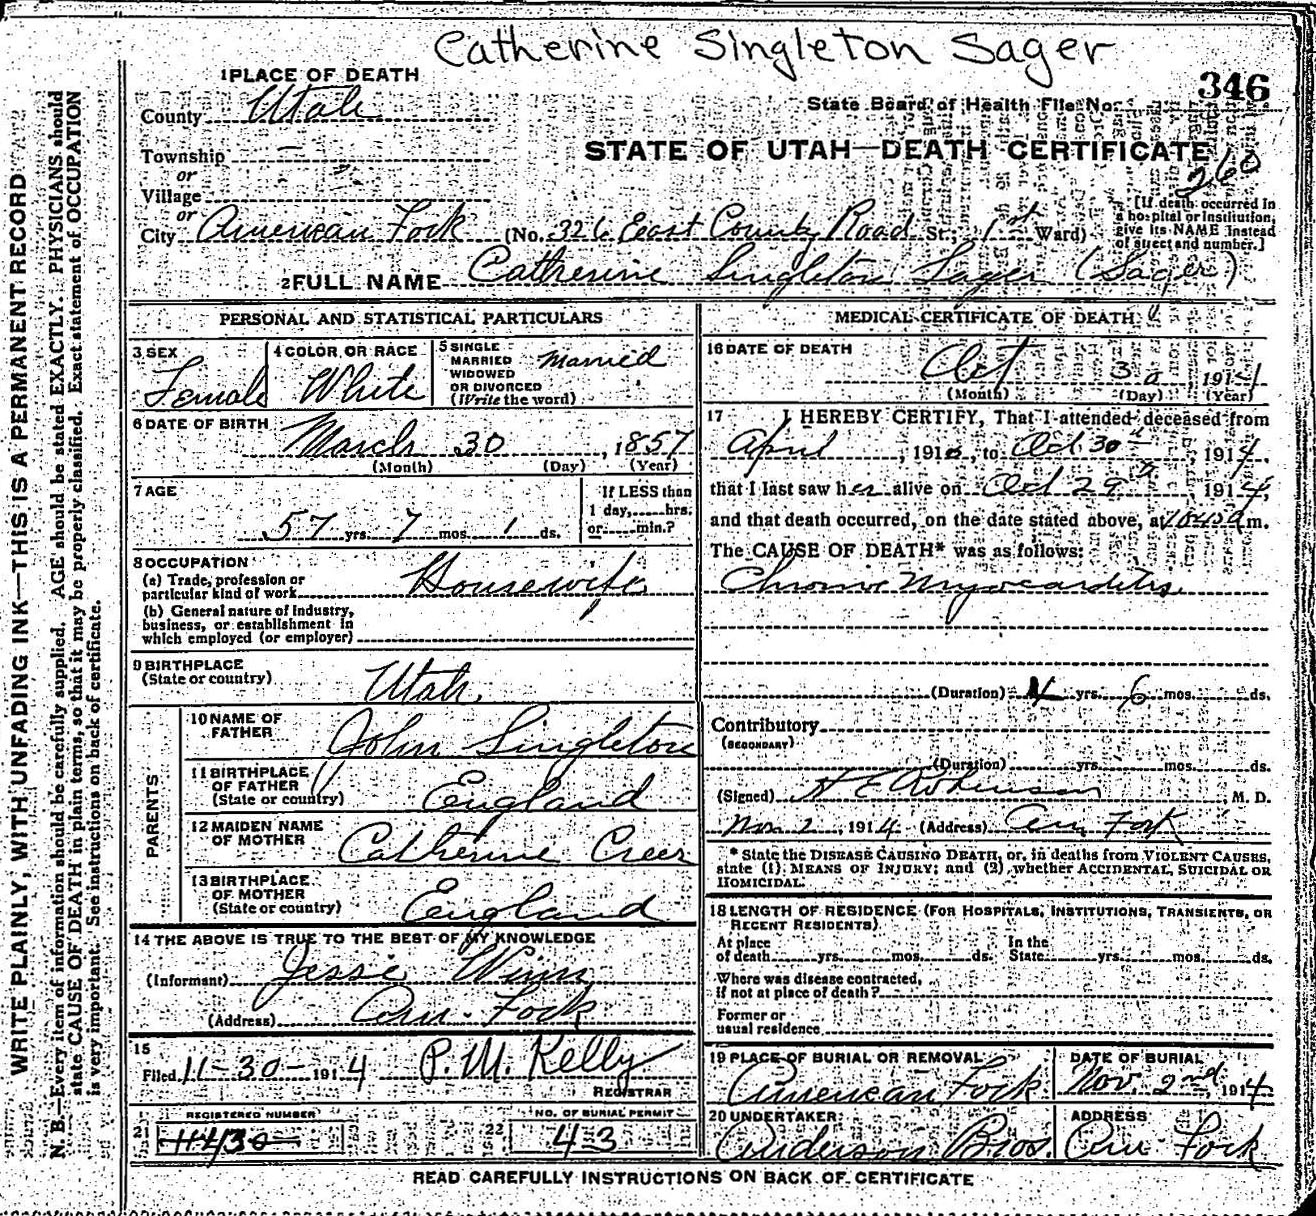 Catherine Singleton Sager
346
State Board of Health File No.
STATE OF UTAH—DEATH CERTIFICATE
260
1 PLACE OF DEATH
County Utah
Township
or
Village
or
City American Fork (No. 326 East County Road St; 1st Ward)
[If death occurred in
a hospital or institution,
give its NAME instead
of street and number.]
2 FULL NAME Catherine Singleton Sager (Sager)
PERSONAL AND STATISTICAL PARTICULARS
3 SEX
Female
4 COLOR OR RACE
White
5 SINGLE
MARRIED
WIDOWED
OR DIVORCED
(Write the word)
Married
6 DATE OF BIRTH
March 30, 1857
(Month) (Day) (Year)
7 AGE
57 yrs. 7 mos. 1 ds.
If LESS than
1 day, hrs.
or min.?
8 OCCUPATION
(a) Trade, profession or
particular kind of work Housewife
(b) General nature of Industry,
business, or establishment in
which employed (or employer)
9 BIRTHPLACE
(State or country)
Utah
PARENTS
10 NAME OF
FATHER
John Singleton
11 BIRTHPLACE
OF FATHER
(State or country)
England
12 MAIDEN NAME
OF MOTHER
Catherine Creer
13 BIRTHPLACE
OF MOTHER
(State or country)
England
14 THE ABOVE IS TRUE TO THE BEST OF MY KNOWLEDGE
(Informant) Jesse Winn
(Address) Am. Fork
15
Filed 11-30-1914 P. M. Kelly
REGISTRAR
21 REGISTERED NUMBER
22 NO. OF BURIAL PERMIT
43
MEDICAL CERTIFICATE OF DEATH
16 DATE OF DEATH
Oct 30 1914
(Month) (Day) (Year)
17 I HEREBY CERTIFY, That I attended deceased from
April, 1910, to Oct 30th, 1914,
that I last saw her alive on Oct 29th 1914,
and that death occurred, on the date stated above, at m.
The CAUSE OF DEATH* was as follows:
Chronic Myocarditis
(Duration) 4 yrs. 6 mos. ds.
Contributory
(SECONDARY)
(Duration) yrs. mos. ds.
(Signed) M. D.
Nov 2, 1914 (Address) Am Fork
* State the DISEASE CAUSING DEATH, or, in deaths from VIOLENT CAUSES,
state (1) MEANS OF INJURY; and (2) whether ACCIDENTAL, SUICIDAL OR
HOMICIDAL.
18 LENGTH OF RESIDENCE (FOR HOSPITALS, INSTITUTIONS, TRANSIENTS, OR
RECENT RESIDENTS)
At place
of death yrs. mos. ds.
In the
State yrs. mos. ds.
Where was disease contracted,
if not at place of death?
Former or
usual residence
19 PLACE OF BURIAL OR REMOVAL
American Fork
DATE OF BURIAL
Nov. 2nd, 1914
20 UNDERTAKER
Anderson Bros.
ADDRESS
Am Fork
READ CAREFULLY INSTRUCTIONS ON BACK OF CERTIFICATE
WRITE PLAINLY, WITH UNFADING INK—THIS IS A PERMANENT RECORD
N. B.—Every item of information should be carefully supplied. AGE should be stated EXACTLY. PHYSICIANS should
state CAUSE OF DEATH in plain terms, so that it may be properly classified. Exact statement of OCCUPATION
is very important. See instructions on back of certificate.